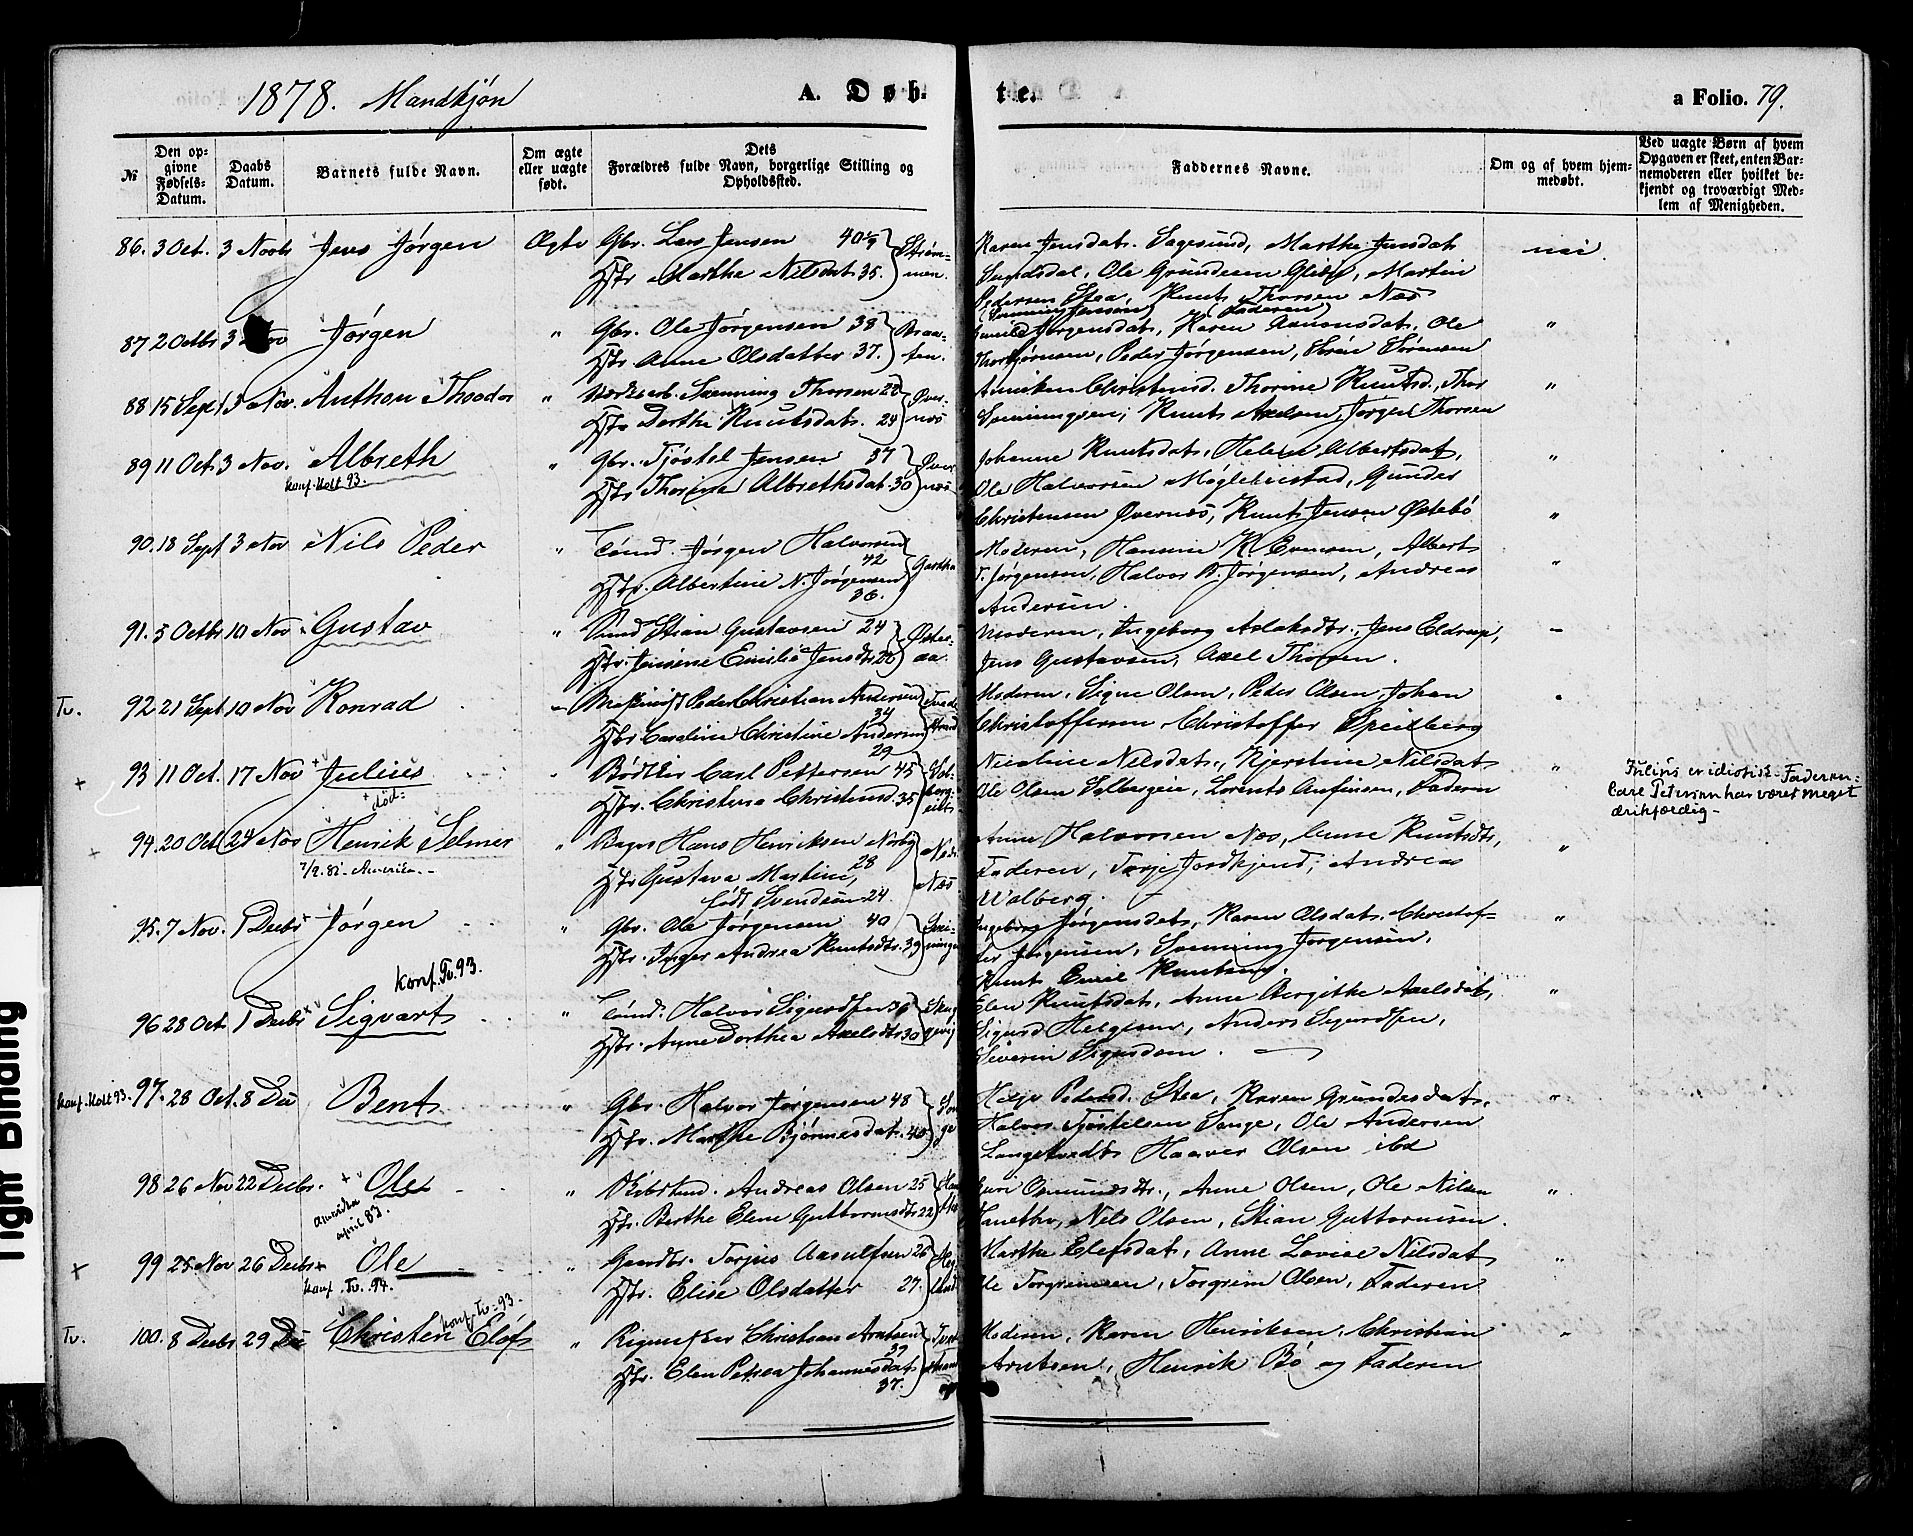 1878. Mandkjøn
A. Døb-
te.
a Folio. 79.
№
Den op-
givne
Fødsels-
Datum.
Daabs
Datum.
Barnets fulde Navn.
Om ægte
eller uægte
født.
Dets
Forældres fulde Navn, borgerlige Stilling og
Opholdssted.
Faddernes Navne.
Om og af hvem hjem-
medøbt.
Ved uægte Børn af hvem
Opgaven er skeet, enten Bar-
nemoderen eller hvilket be-
kjendt og troværdigt Med-
lem af Menigheden.
86. 3 Oct. 3 Novbr Jens Jørgen Ægte Gbr. Lars Jensen
Hstr Marthe Nilsdat. 35. Strøm-
men.
Karen Jensdat. Sagesund, Marthe Jensdat
Ole Grundesen, Martin
Pedersen Staa, Knut Thorsen Næs
nei.
87 2 Octbr 3 Nov Jørgen " Gbr. Ole Jørgensen 38
Hstr Anne Olsdatter 37. Braa-
ten.
Jørgensdat. Karen Aanonsdat. Ole
Thorbjørnsen, Peder Jørgensen, Sørensen
(Faderen)
"
88 15 Sept 3 Nov. Anthon Theodor " Svenning Thorsen 28
Hstr Dorthe Knutsdat. 24 Øver-
næs
Anniken Christensd. Thorine Knutsd., Thor
Svenningsen, Knut Axelsen, Jørgen Thorsen
"
89 11 Oct. 3 Nov. Albreth " Gbr. Tjøstel Jensen 37
konf. Holt 93.
Hstr Thorine Albrethsdat. 30 Øver
næs
Johanne Knutsdat. Helene Albertsdat,
Ole Halvorsen Møglebustad, Gunder
Christensen Øvernæs, Knut Jensen Østebö
"
90. 18 Sept 3 Nov Nils Peder " Tømd. Jørgen Halvorsen
42
Hstr. Albertine N. Jörgensen
36. Gartha
Moderen, Hansine K. Evensen, Albert
T. Jørgensen, Halvor B. Jørgensen, Andreas
Andersen.
"
91. 5 Octbr 10 Nov Gustav " Stian Gustavsen 24
Hstr. Jensine Emilie Jensdtr 22 Østes-
aa.
Moderen, Ingeborg Aslaksdtr, Jens Eldrup,
Jens Gustavsen, Axel Thorsen.
Tv. 92 21 Sept 10 Nov Konrad Maskinist Peder Christian Andersen
34
Hstr Caroline Christine Andersen
29
Moderen, Signe Olsen, Peder Olsen, Johan
Christoffersen Christoffer Speilberg
+ 93 11 Oct. 17 Nov Julius Bødker Carl Pettersen 45
+ död.
Hstr. Christine Christensd. 35
Nicoline Nilsdat., Kjerstine Nilsdat
Ole Olsen Solbergeie, Lorents Anfinsen, Faderen
"
Julius er idiotisk - Faderen -
Carl Petersen har været meget
drikfældig -
94. 20 Oct 24 Nov Henrik Selmer " Bager Hans Henriksen Norby
7/2. 82 - Amerika. -
28
Hstr Gustava Martine,
født Svendsen 24. Nedre
Næs
Anne Halvorsen Næs, Anne Knutsdtr,
Faderen, Terje Jordkjend, Andreas
Walberg.
"
95. 7 Nov. 1 Decbr Jørgen " Gbr. Ole Jørgensen 40
Hstr. Inger Andrea Knutsdtr. 39
Ingeborg Jørgensdat, Karen Olsdat. Christof-
fer Jørgensen, Svenning Jørgensen,
Knut Emil Knutsen.
"
konf. Tv. 93.
96 28 Oct. 1 Decbr Sigvart " Tømd. Halvor Sigurdsen 36
Hstr. Anne Dorthea Axelsdtr 30
Elen Knutsdat, Anne Birgithe Axelsdat,
Sigurd Helgesen, Anders Sigurdsen,
Severin Sigurdsen.
"
konf. Holt 93. 97. 28 Oct. 8 Dec Bent " Gbr. Halvor Jørgensen 48
Hstr. Marthe Bjørnesdat. 40 Son
ge
Helje Pedersd. Staa, Karen Grundesdat,
Halvor Tjøstelsen Songe, Ole Andersen
Langetvedt Haaver Olsen ibd
"
98 26 Nov 22 Decbr. Ole " Andreas Olsen 25
Amerika
april 83.
Hstr. Berthe Elene Guttormsdtr 22
Guri Osmundsdtr., Anne Olsen, Ole Nilsen
Hanetho, Nils Olsen, Stian Guttormsen.
"
+ 99 25 Nov 26 Decbr Ole " Gaardbr. Torjus Aasulfsen 26
konf. Tv. 94.
Hstr. Elise Olsdatter 27.
Marthe Elefsdat, Anne Lovise Nilsdat
Ole Torgrimsen, Torgrim Olsen, Faderen
"
Tv. 100. 8 Decbr 29 Dec Christen Elefs " Christian Arntsen
konf. Tv. 93.
39
Hstr. Elen Petrea Johannesdat
37.
Moderen, Karen Henriksen, Christian
Arntsen, Henrik Bö og Faderen
"
Tight Binding